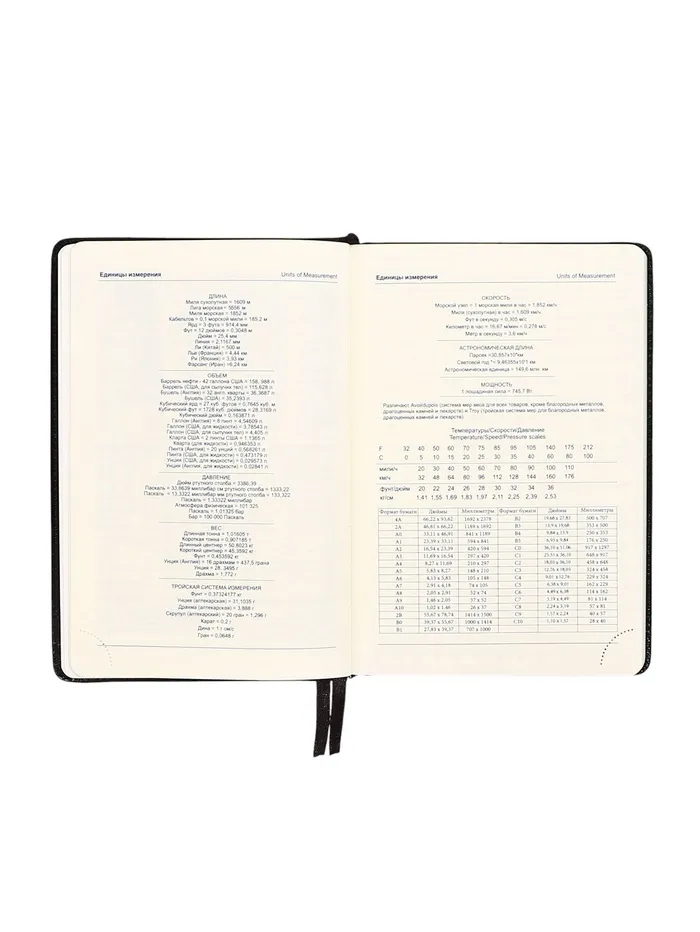 Единицы измерения Units of Measurement
ДЛИНА
Миля сухопутная = 1609 м
Лига морская = 5556 м
Миля морская = 1852 м
Кабельтов = 0,1 морской мили = 185,2 м
Ярд = 3 фута = 914,4 мм
Фут = 12 дюймов = 0,3048 м
Дюйм = 25,4 мм
Линия = 2,1167 мм
Ли (Китай) = 500 м
Лье (Франция) = 4,44 км
Ри (Япония) = 3,93 км
Фарсанг (Иран) =6,24 км
ОБЪЕМ
Баррель нефти - 42 галлона США = 158, 988 л
Баррель (США, для сыпучих тел) = 115,628 л
Бушель (Англия) = 32 англ. кварты = 36,3687 л
Бушель (США) = 35,2393 л
Кубический ярд = 27 куб. футов = 0,7645 куб. м
Кубический фут = 1728 куб. дюймов = 28,3169 л
Кубический дюйм = 0,163871 л
Галлон (Англия) = 8 пинт = 4,54609 л
Галлон (США, для жидкости) = 3,78543 л
Галлон (США, для сыпучих тел) = 4,405 л
Кварта США = 2 пинты США = 1,1365 л
Кварта (для жидкости) = 0,946353 л
Пинта (Англия) = 20 унций = 0,568261 л
Пинта (США, для жидкости) = 0,473179 л
Унция (США, для жидкости) = 0,029573 л
Унция (Англия) = 0,02841 л
ДАВЛЕНИЕ
Дюйм ртутного столба = 3386,39
Паскаль = 33,8639 миллибар см ртутного столба = 1333,22
Паскаль = 13,3322 миллибар мм ртутного столба = 133,322
Паскаль = 1,33322 миллибар
Атмосфера физическая = 101,325
Паскаль = 1,01325 бар
Бар = 100 000 Паскаль
ВЕС
Длинная тонна = 1,01605 т
Короткая тонна = 0,907185 т
Длинный центнер = 50,8023 кг
Короткий центнер = 45,3592 кг
Фунт = 0,453592 кг
Унция (Англия) = 16 драхмам = 437,5 грана
Унция = 28, 3495 г
Драхма = 1,772 г
ТРОЙСКАЯ СИСТЕМА ИЗМЕРЕНИЯ
Фунт = 0,37324177 кг
Унция (аптекарская) = 31,1035 г
Драхма (аптекарская) = 3,888 г
Скрупул (аптекарский) = 20 гран = 1,296 г
Карат = 0,2 г
Дина = 1 г см/с
Гран = 0,0648 г
Единицы измерения Units of Measurement
СКОРОСТЬ
Морской узел = 1 морская миля в час = 1,852 км/ч
Миля (сухопутная) в час = 1,609 км/ч
Фут в секунду = 0,305 м/с
Километр в час = 16,67 м/мин = 0,278 м/с
Метр в секунду = 3,6 км/ч
АСТРОНОМИЧЕСКАЯ ДЛИНА
Световой год
Астрономическая единица = 149,6 млн. км
МОЩНОСТЬ
1 лошадиная сила = 745,7 Вт
Различают Avoirdupois (система мер веса для всех товаров, кроме благородных металлов,
драгоценных камней и лекарств) и Troy (тройская система мер для благородных металлов,
драгоценных камней и лекарств).
Температуры/Скорости/Давление
Temperature/Speed/Pressure scales
F 32 40 50 60 70 75 85 95 105 140 175 212
C 0 5 10 15 20 25 30 35 40 60 80 100
мили/ч 20 30 40 50 60 70 80 90 100 110
км/ч 32 48 64 80 96 112 128 144 160 176
фунт/дюйм 20 22 24 26 28 30 32 34 36
кг/см 1,41 1,55 1,69 1,83 1,97 2,11 2,25 2,39 2,53
Формат бумаги Дюймы Миллиметры Формат бумаги Дюймы Миллиметры
4A 66,22 x 93,62 1682 x 2378 B2 19,68 x 27,83 500 x 707
2A 46,81 x 66,22 1189 x 1682 B3 353 x 500
A0 33,11 x 46,81 841 x 1189 B4 9,84 x 13,9 250 x 353
A1 23,39 x 33,11 594 x 841 B5 6,93 x 9,84 176 x 250
A2 16,54 x 23,39 420 x 594 C0 36,10 x 51,06 917 x 1297
A3 11,69 x 16,54 297 x 420 C1 25,51 x 36,10 648 x 917
A4 8,27 x 11,69 210 x 297 C2 18,03 x 25,51 458 x 648
A5 5,83 x 8,27 148 x 210 C3 12,76 x 18,03 324 x 458
A6 4,13 x 5,83 105 x 148 C4 9,01 x 12,76 229 x 324
A7 2,91 x 4,13 74 x 105 C5 6,38 x 9,01 162 x 229
A8 2,05 x 2,91 52 x 74 C6 4,49 x 6,38 114 x 162
A9 1,46 x 2,05 37 x 52 C7 3,19 x 4,49 81 x 114
A10 1,02 x 1,46 26 x 37 C8 2,24 x 3,19 57 x 81
2B 55,67 x 78,74 1414 x 1500 C9 1,57 x 2,24 40 x 57
B0 39,37 x 55,67 1000 x 1414 C10 1,10 x 1,57 28 x 40
B1 27,83 x 39,37 707 x 1000